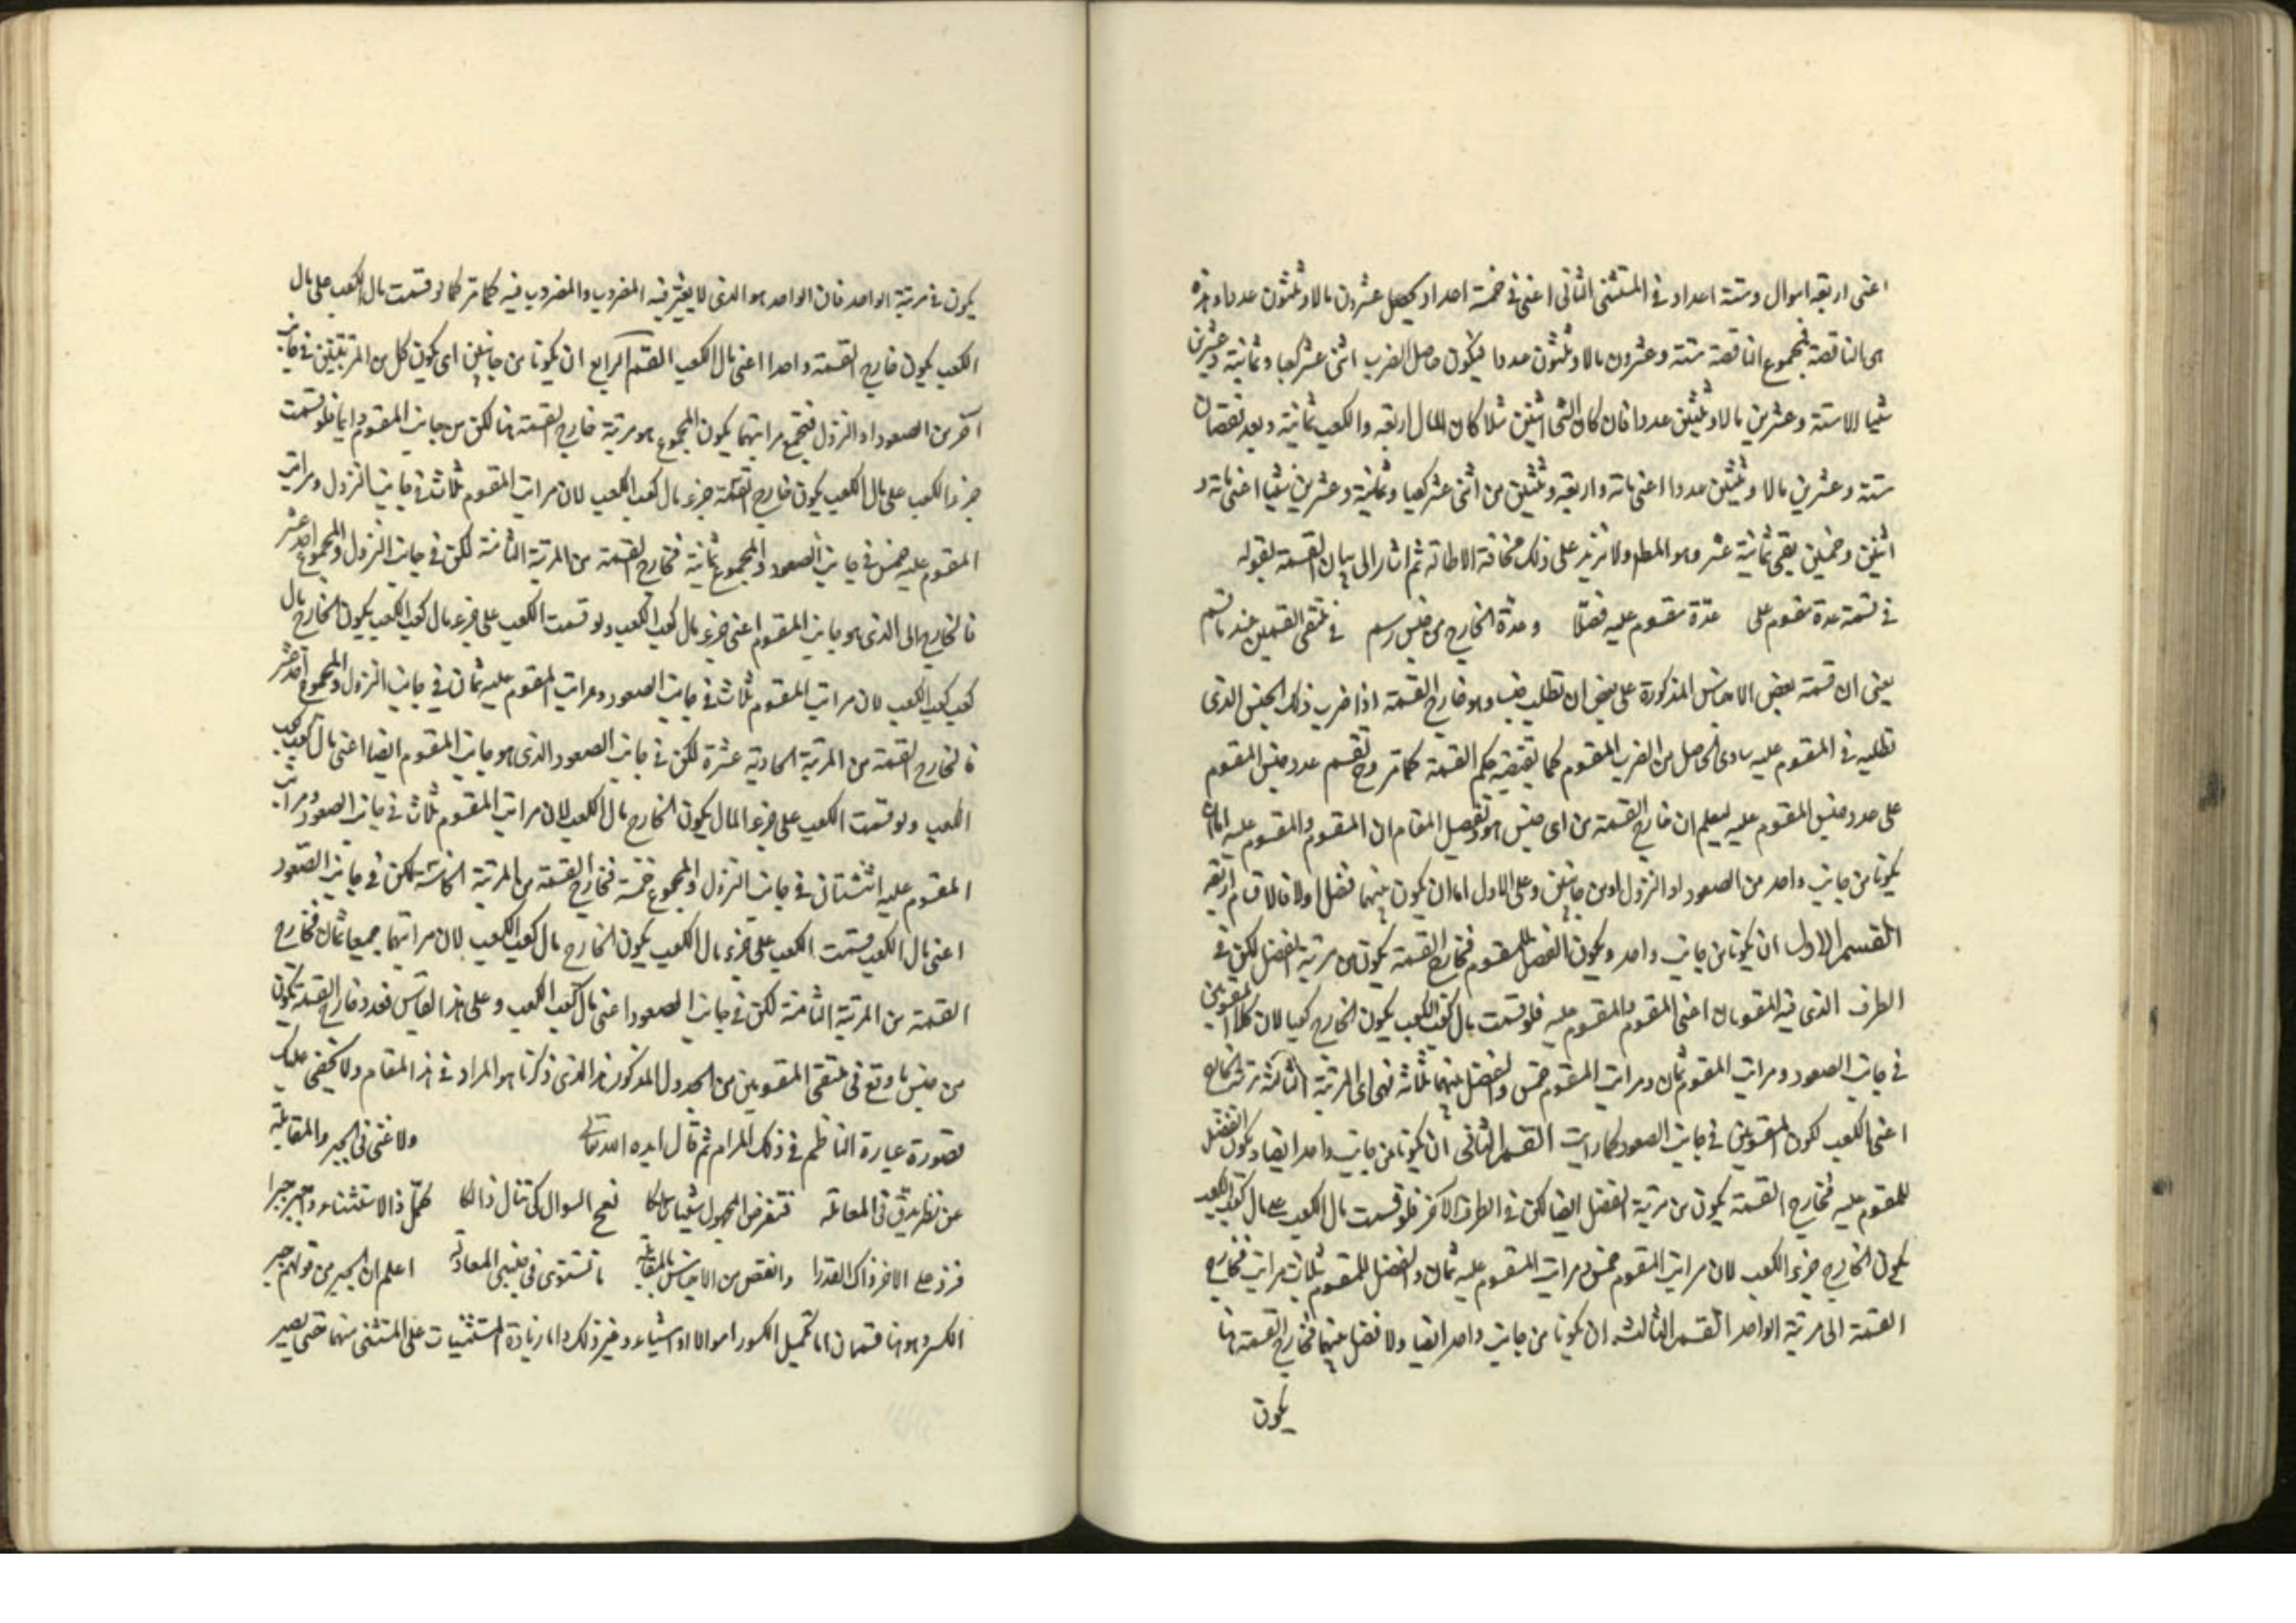 اعنى اربعة اموال وستة اعداد فى المستثنى الثانى اعنى فى خمسة اعداد يحصل عشرون مالا وثلثون عددا وهذه
هى الناقصة فمجموع الناقصة ستة وعشرون مالا وثلثون عددا فيكون حاصل الضرب اثنى عشر كعبا وثمانية وعشرين
شيئا الا ستة وعشرين مالا وثلثين عددا فان كان الشئ اثنين مثلا كان المال اربعة والكعب ثمانية وبعد نقصان
ستة وعشرين مالا وثلثين عددا اعنى مائة واربعة وثلثين من اثنى عشر كعبا وثمانية وعشرين شيئا اعنى مائة و
اثنين وخمسين يبقى ثمانية عشر وهو المط ولا نزيد على ذلك مخافة الاطالة ثم اشار الى بيان القسمة بقوله
فى قسمة عدة مقسوم على عدة مقسوم عليه فضلا وعدة الخارج من جنس رسم فى ملتقى القسمين عند ما قسم
يعنى ان قسمة بعض الاجناس المذكورة على بعض ان تطلب جنسا وهو خارج القسمة اذا ضرب ذلك الجنس الذى
تطلبه فى المقسوم عليه ساوى الحاصل من الضرب المقسوم كما يقتضيه حكم القسمة كما مر وح تقسم عدد جنس المقسوم
على عدد جنس المقسوم عليه ليعلم ان خارج القسمة من اى جنس هو وتفصيل المقام ان المقسوم والمقسوم عليه اما ان
يكونا من جانب واحد من الصعود او النزول او من جانبين وعلى الاول اما ان يكون بينهما فضل او لا فالاقسام اربعة
القسم الاول ان يكونا من جانب واحد ويكون الفضل للمقسوم فخارج القسمة يكون من مرتبة الفضل لكن فى
الطرف الذى فيه المقسومان اعنى المقسوم والمقسوم عليه فلو قسمت مال كعب الكعب يكون الخارج كعبا لان كلا المقسومين
فى جانب الصعود ومراتب المقسوم ثمان ومراتب المقسوم خمس والفضل بينهما ثلاثة فهى اى المرتبة الثالثة مرتبة الخارج
اعنى الكعب لكون المقسومين فى جانب الصعود كما رايت القسم الثانى ان يكونا من جانب واحد ايضا ويكون الفضل
للمقسوم عليه فخارج القسمة يكون من مرتبة الفضل ايضا لكن فى الطرف الاخر فلو قسمت مال الكعب على مال كعب الكعب
يكون الخارج جزء الكعب لان مراتب المقسوم خمس ومراتب المقسوم عليه ثمان والفضل للمقسوم بثلاث مراتب فخارج
القسمة الى مرتبة الواحد القسم الثالث ان يكونا من جانب واحد ايضا ولا فضل بينهما فخارج القسمة هنا
يكون
يكون فى مرتبة الواحد فان الواحد هو الذى لا يغير فيه المضروب والمضروب فيه كما مر كما لو قسمت مال الكعب على مال
الكعب يكون خارج القسمة واحدا اعنى مال الكعب القسم الرابع ان يكونا من جانبين اى يكون كل من المرتبتين فى جانب
آخر من الصعود او النزول فتجمع مراتبهما يكون المجموع هو مرتبة خارج القسمة هنا لكن من جانب المقسوم دايما فلو قسمت
جزء الكعب على مال الكعب يكون خارج القسمة جزء مال كعب الكعب لان مراتب المقسوم ثلاث فى جانب النزول ومراتب
المقسوم عليه خمس فى جانب الصعود والمجموع ثمانية فخارج القسمة من المرتبة الثامنة لكن فى جانب النزول والمجموع احد عشر
فالخارج الى الذى هو جانب المقسوم اعنى جزء مال كعب الكعب ولو قسمت الكعب على جزء مال كعب الكعب يكون الخارج مال
كعب كعب الكعب لان مراتب المقسوم ثلاث فى جانب الصعود ومراتب المقسوم عليه ثمان فى جانب النزول والمجموع احد عشر
فالخارج القسمة من المرتبة الحادية عشرة لكن فى جانب الصعود الذى هو جانب المقسوم ايضا اعنى مال كعب كعب
الكعب ولو قسمت الكعب على جزء المال يكون الخارج مال الكعب لان مراتب المقسوم ثلاث فى جانب الصعود ومراتب
المقسوم عليه اثنتان فى جانب النزول والمجموع خمسة فخارج القسمة من المرتبة الخامسة لكن فى جانب الصعود
اعنى مال الكعب قسمت الكعب على جزء مال الكعب يكون الخارج مال كعب الكعب لان مراتبهما جميعا ثمان فخارج
القسمة من المرتبة الثامنة لكن فى جانب الصعود اعنى مال كعب الكعب وعلى هذا القياس فعدد خارج القسمة يكون
من جنس ما وقع فى ملتقى المقسومين من الجدول المذكور هذا الذى ذكرنا هو المراد فى هذا المقام ولا يخفى عليك
قصورة عبارة الناظم فى ذلك المرام ثم قال ايده الله تعالى ولا غنى فى الجبر والمقابلة
عن نظر يدق فى المعاملة فتفرض المجهول شيئا سالكا نهج السوال كى تنال ذالكا كمل ذا الاستثناء وتجبر جبرا
فزد على الاخر ذاك القدرا وانقص من الاجناس بالمقابلة ما تستوى فى جنبى المعادلة اعلم ان الجبر من قولهم جبر
الكسر وهو هنا قسمان اما تكميل الكسور اموالا او اشياء وغير ذلك واما زيادة المستثنيات على المستثنى منهما حتى يصير